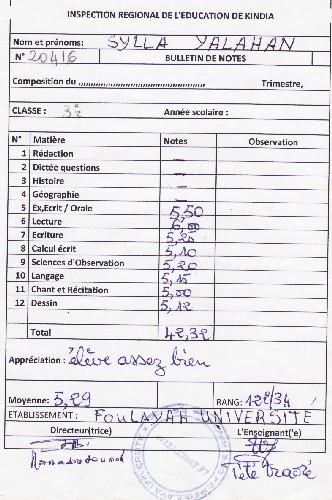 INSPECTION REGIONAL DE L'EDUCATION DE KINDIA
Nom et prénoms: SYLLA YALAHAN
N° 20416 BULLETIN DE NOTES
Composition du ........................................ Trimestre,
CLASSE : 3è Année scolaire :
N° Matière Notes Observation
1 Rédaction —
2 Dictée questions —
3 Histoire —
4 Géographie —
5 Ex,Ecrit / Orale 5,50
6 Lecture 6,00
7 Ecriture 5,20
8 Calcul écrit 5,10
9 Sciences d'Observation 5,20
10 Langage 5,15
11 Chant et Récitation 5,00
12 Dessin 5,12
Total 42,32
Appréciation : élève assez bien
Moyenne: 5,29 RANG: 12è/34
ETABLISEMENT : FOULAYAH UNIVERSITE
Directeur(trice) L'Enseignant('e)
Tété Traoré